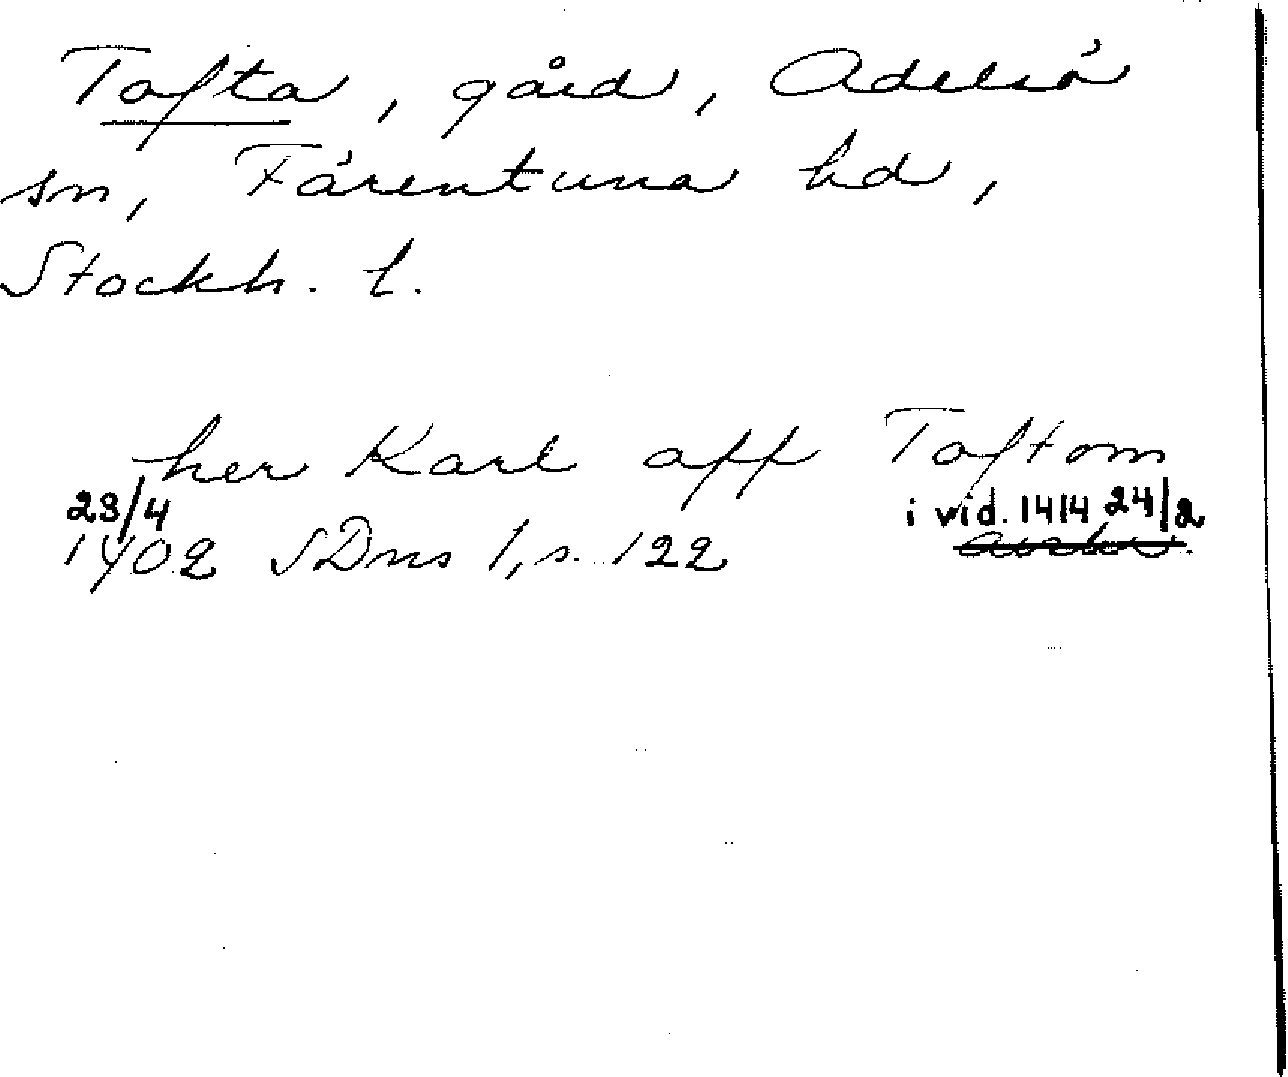 Tafta, gård, Adelsö
sn, Färentuna hd,
Stockh. l.
her Karl aff Taftom
23/4 i vid. 1414 24/2
1402 SDns 1, s. 122